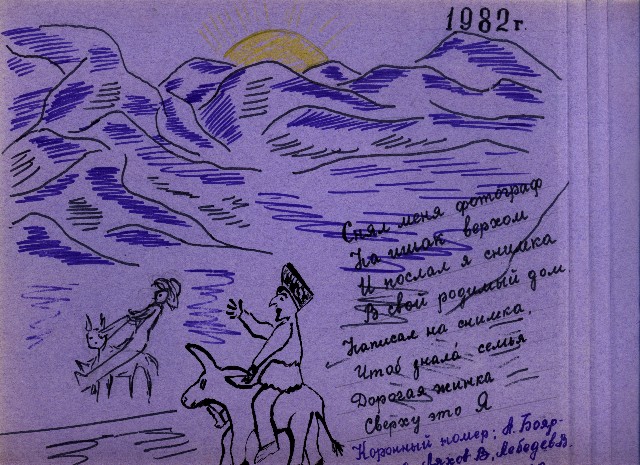 1982 г.
Снял меня фотограф
На ишак верхом
И послал я снимка
В свой родимый дом.
Написал на снимка,
Чтоб знала семья
Дорогая жинка
Сверху это Я
Коронный номер: А. Бояр-
В, Лебедев В.